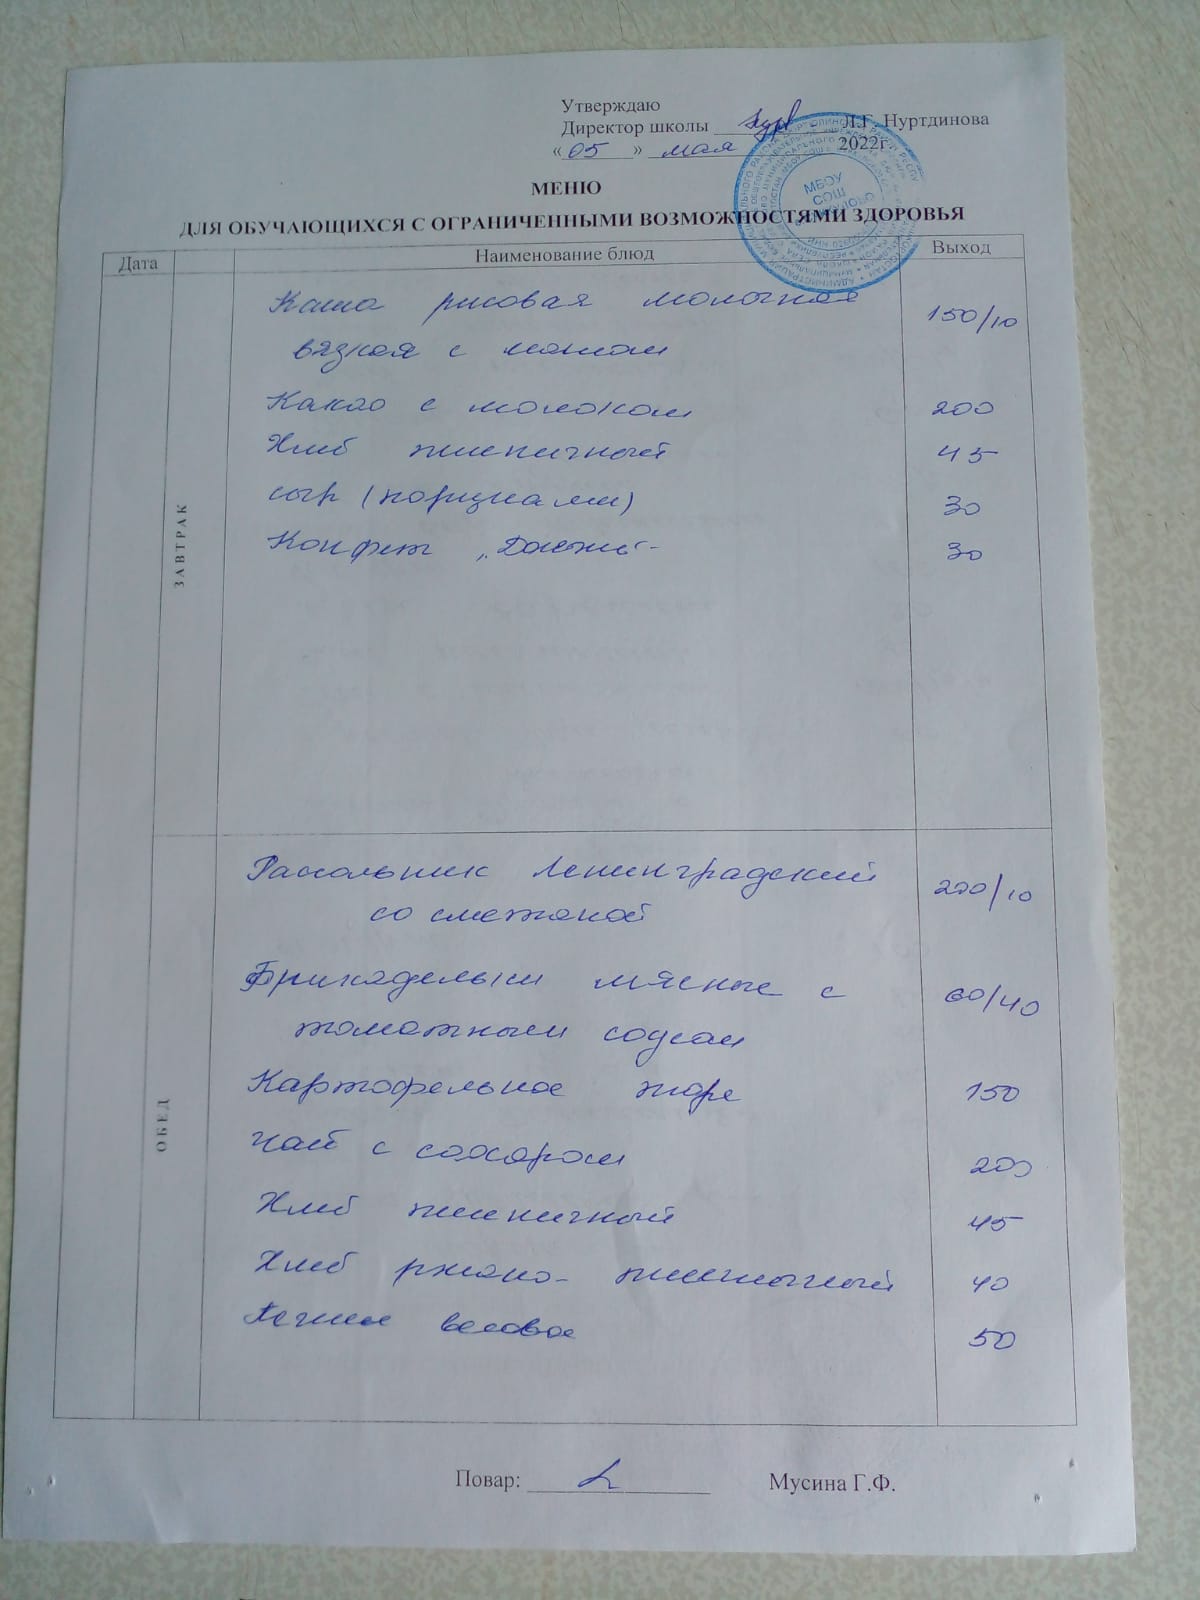 Утверждаю
Директор школы Л.Г. Нуртдинова
«05» мая 2022г.
МЕНЮ
ДЛЯ ОБУЧАЮЩИХСЯ С ОГРАНИЧЕННЫМИ ВОЗМОЖНОСТЯМИ ЗДОРОВЬЯ
Дата Наименование блюд Выход
ЗАВТРАК
Каша рисовая молочная 150/10
вязкая с маслом
Какао с молоком 200
Хлеб пшеничный 45
сыр (порциями) 30
Конфет 30
ОБЕД
Рассольник Ленинградский 200/10
со сметаной
Фрикадельки мясные с 60/40
томатным соусом
Картофельное пюре 150
Чай с сахаром 200
Хлеб пшеничный 45
Хлеб ржано- пшеничный 40
Печенье весовое 50
Повар: Мусина Г.Ф.
МБОУ
СОШ